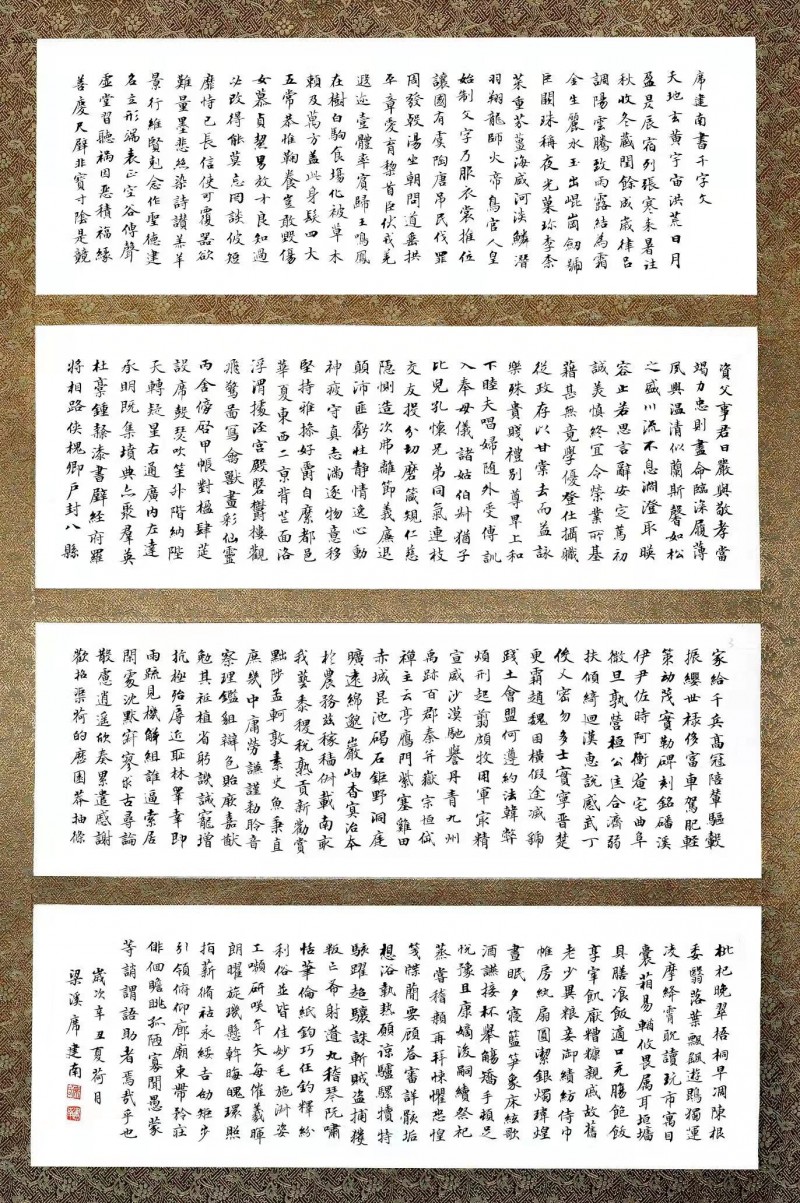 席建南書千字文
天地玄黄宇宙洪荒日月
盈昃辰宿列張寒来暑往
秋收冬藏閏餘成歲律吕
調陽雲騰致雨露結為霜
金生麗水玉出崐崗劒號
巨闕珠稱夜光菓珍李柰
菜重芥薑海鹹河淡鱗潛
羽翔龍師火帝鳥官人皇
始制文字乃服衣裳推位
讓國有虞陶唐吊民伐罪
周發殷湯坐朝問道垂拱
平章愛育黎首臣伏戎羌
遐邇壹體率賓歸王鳴鳳
在樹白駒食場化被草木
賴及萬方蓋此身髮四大
五常恭惟鞠養豈敢毀傷
女慕貞絜男效才良知過
必改得能莫忘罔談彼短
靡恃己長信使可覆器欲
難量墨悲絲染詩讃羔羊
景行維賢剋念作聖德建
名立形端表正空谷傳聲
虛堂習聽禍因惡積福緣
善慶尺璧非寶寸陰是競
資父事君曰嚴與敬孝當
竭力忠則盡命臨深履薄
夙興温凊似蘭斯馨如松
之盛川流不息淵澄取暎
容止若思言辭安定篤初
誠美慎終宜令榮業所基
藉甚無竟學優登仕攝職
從政存以甘棠去而益詠
樂殊貴賤禮別尊卑上和
下睦夫唱婦随外受傅訓
入奉母儀諸姑伯叔猶子
比兒孔懷兄弟同氣連枝
交友投分切磨箴規仁慈
隱惻造次弗離節義廉退
顛沛匪虧性靜情逸心動
神疲守真志滿逐物意移
堅持雅操好爵自縻都邑
華夏東西二京背芒面洛
浮渭據涇宮殿盤欝樓觀
飛驚圖寫禽獸畫彩仙靈
丙舍傍啓甲帳對楹肆筵
設席鼓瑟吹笙升階納陛
弁轉疑星右通廣内左達
承明既集墳典亦聚羣英
杜稾鍾隸漆書壁經府羅
將相路俠槐卿户封八縣
家給千兵高冠陪輦驅轂
振纓世禄侈富車駕肥輕
策功茂實勒碑刻銘磻溪
伊尹佐時阿衡奄宅曲阜
微旦孰營桓公匡合濟弱
扶傾綺迴漢惠說感武丁
俊乂密勿多士寔寧晉楚
更霸趙魏困橫假途滅虢
踐土會盟何遵約法韓弊
煩刑起翦頗牧用軍最精
宣威沙漠馳譽丹青九州
禹跡百郡秦并嶽宗恒岱
禪主云亭雁門紫塞雞田
赤城昆池碣石鉅野洞庭
曠遠綿邈巖岫杳冥治本
於農務兹稼穡俶載南畝
我藝黍稷税熟貢新勸賞
黜陟孟軻敦素史魚秉直
庶幾中庸勞謙謹勑聆音
察理鑑貌辯色貽厥嘉猷
勉其祗植省躬譏誡寵增
抗極殆辱近耻林皋幸即
兩疏見機解組誰逼索居
閒處沉默寂寥求古尋論
散慮逍遥欣奏累遣慼謝
歡招渠荷的歷園莽抽條
枇杷晚翠梧桐早凋陳根
委翳落葉飄飖遊鵾獨運
凌摩絳霄耽讀玩市寓目
囊箱易輶攸畏属耳垣墻
具膳飡飯適口充腸飽飫
享宰飢厭糟糠親戚故舊
老少異糧妾御績紡侍巾
帷房紈扇圓潔銀燭煒煌
晝眠夕寐藍筍象床絃歌
酒讌接杯舉觴矯手頓足
悅豫且康嫡後嗣續祭祀
蒸嘗稽顙再拜悚懼恐惶
箋牒簡要顧答審詳骸垢
想浴執熱願涼驢騾犢特
駭躍超驤誅斬賊盗捕獲
叛亡布射遼丸嵇琴阮嘯
恬筆倫紙鈞巧任釣釋紛
利俗並皆佳妙毛施淑姿
工顰妍笑年矢每催羲暉
朗曜旋璣懸斡晦魄環照
指薪脩祜永綏吉劭矩步
引領俯仰廊廟束帶矜莊
徘徊瞻眺孤陋寡聞愚蒙
等誚謂語助者焉哉乎也
歲次辛丑夏荷月
梁溪席建南